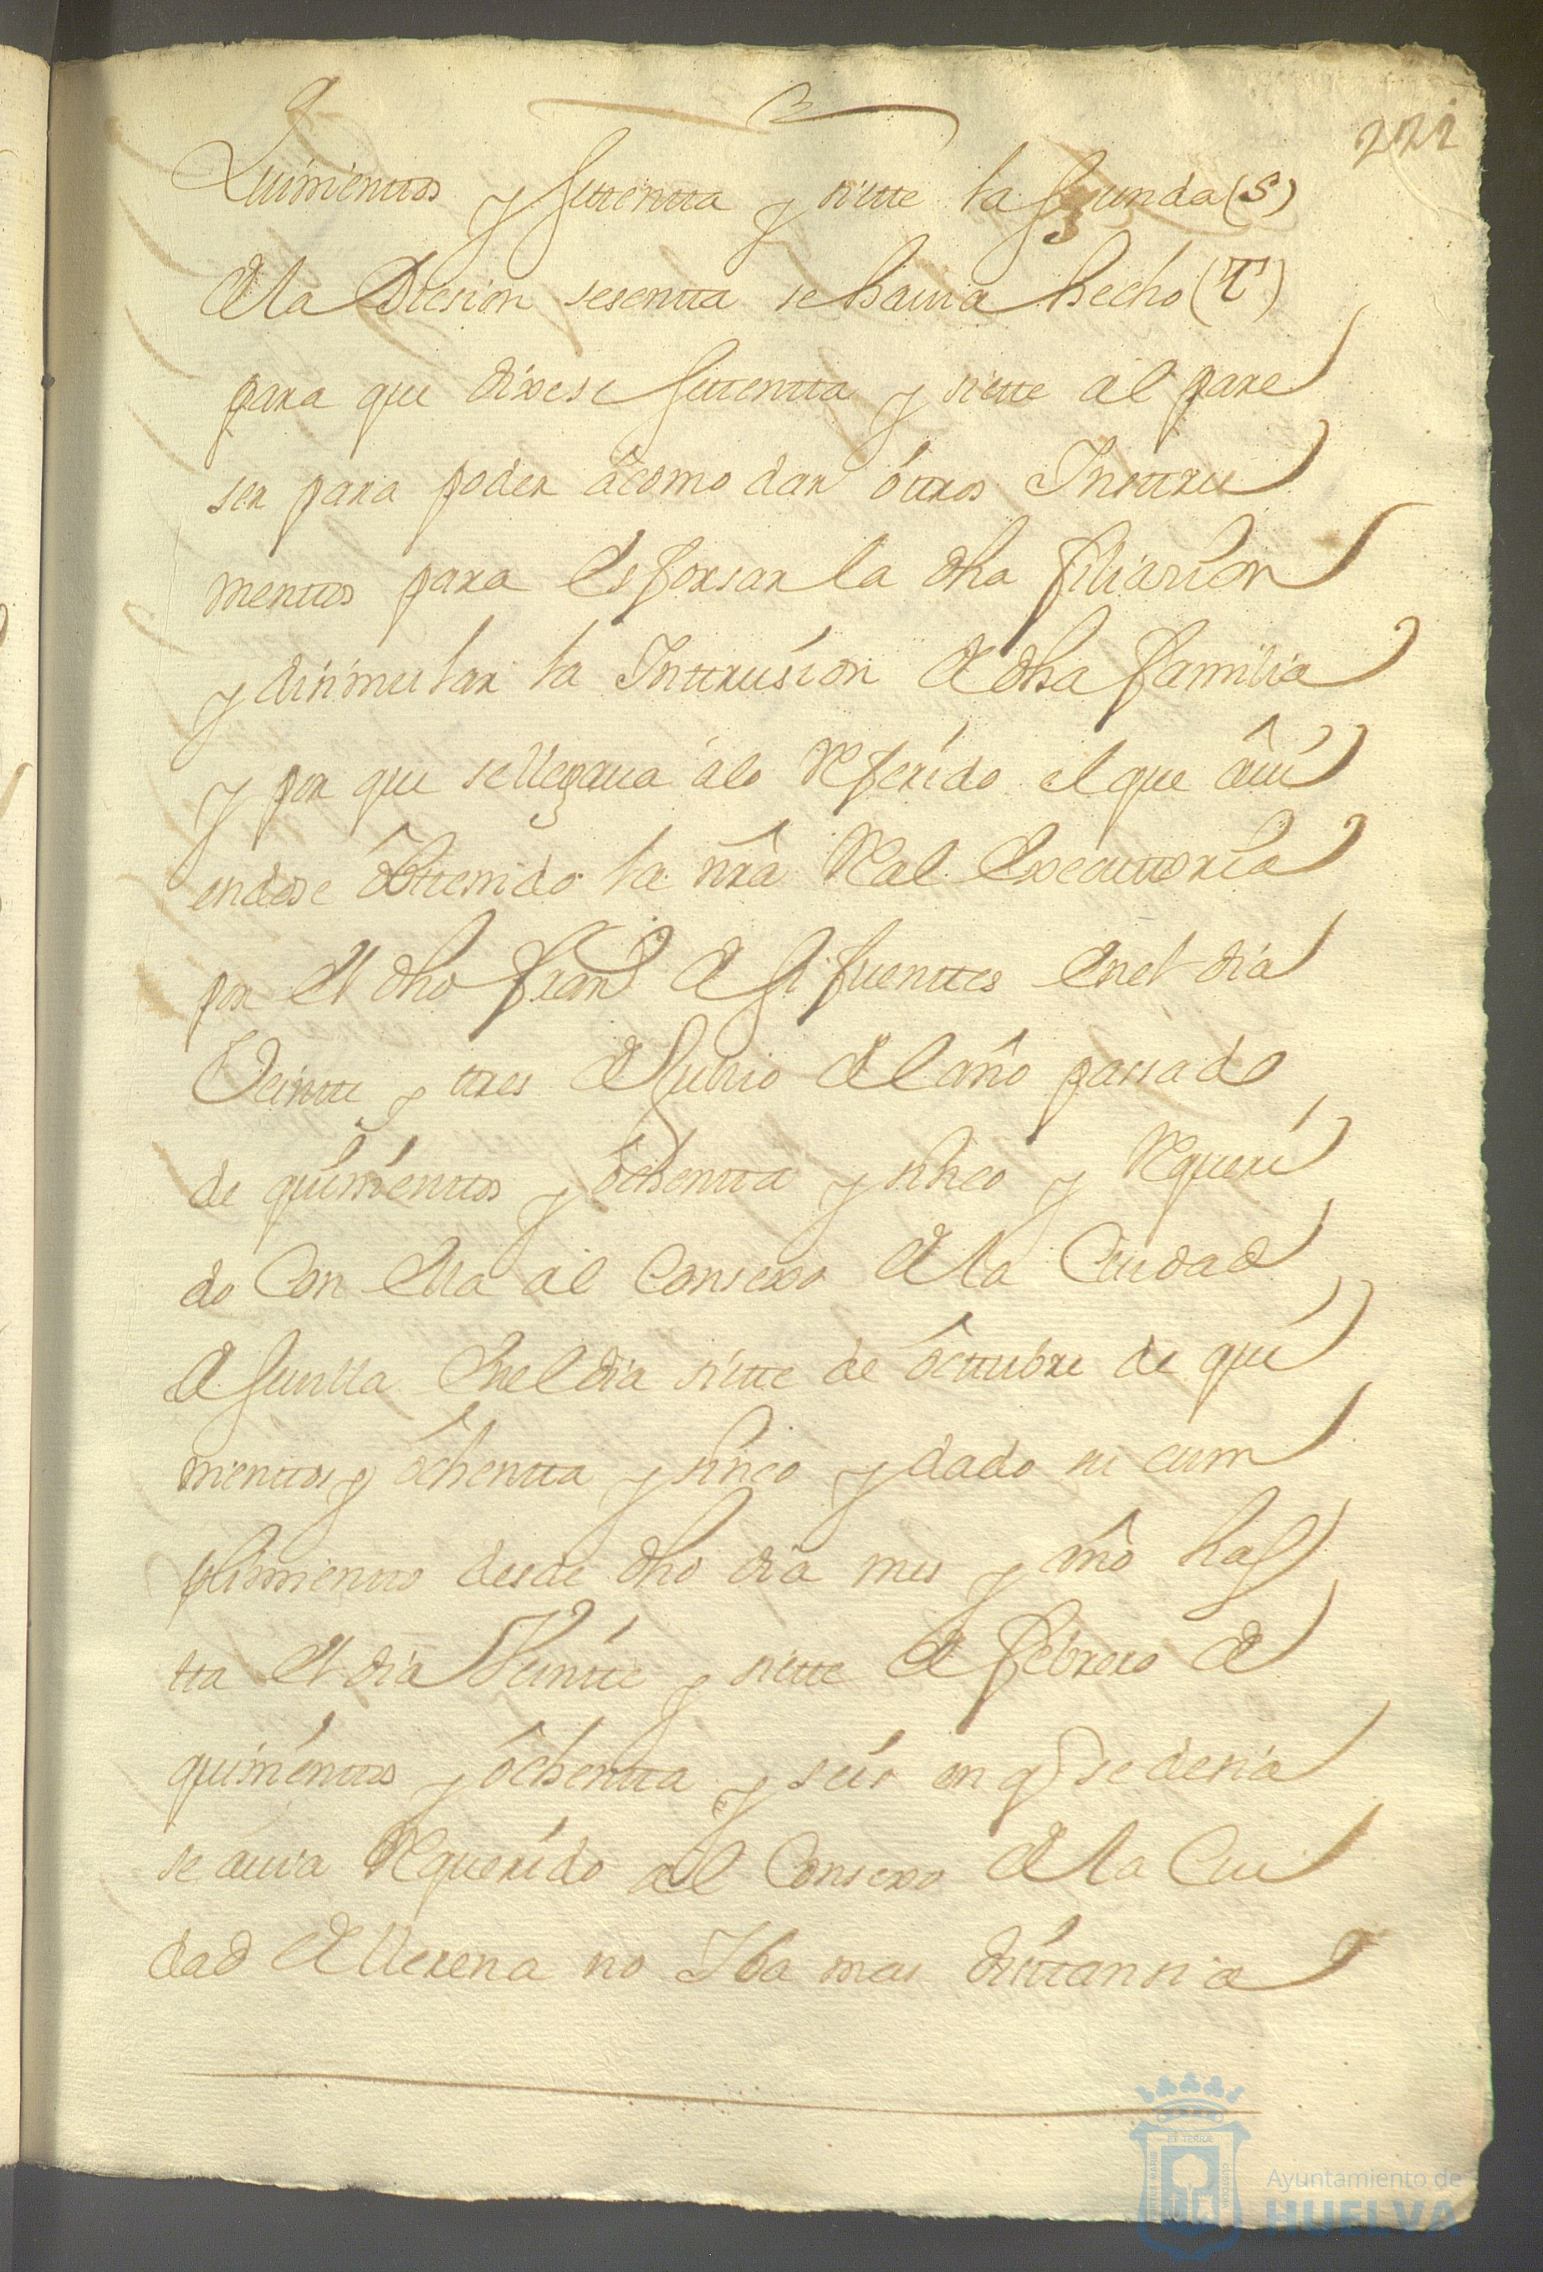 221
Quinienttos y settentta y siette la segunda (S)
de la Dicsion sesentta se havia hecho (T)
para que dixese settentta y siette al pare
ser para poder acomodar óttros Ynsttru
menttos para esforsar la dha filiasion
y disimular la Inttrusion de dha familia
y por que se llegava álo Referido el que avi
endose obttenido la nrâ Real Executtoria
por el dho Fran.co de Sifuenttes en el dia
Veintte y ttres de Junio de el año passado
de quinienttos y ochentta y sinco y Requeri
do con ella al Consexo de la Ciudad
de Sevilla en el dia siette de octtubre de qui
nienttos y ochentta y sinco y dado su cum
plimientto desde dho dia mes y año has
tta el dia Veintte y siette de febrero de
quinienttos y ochentta y seis en q se desia
se avia Requerido al Consexo de la Ciu
dad de Llerena no Iba mas disttansia
Ayuntamiento de
HUELVA